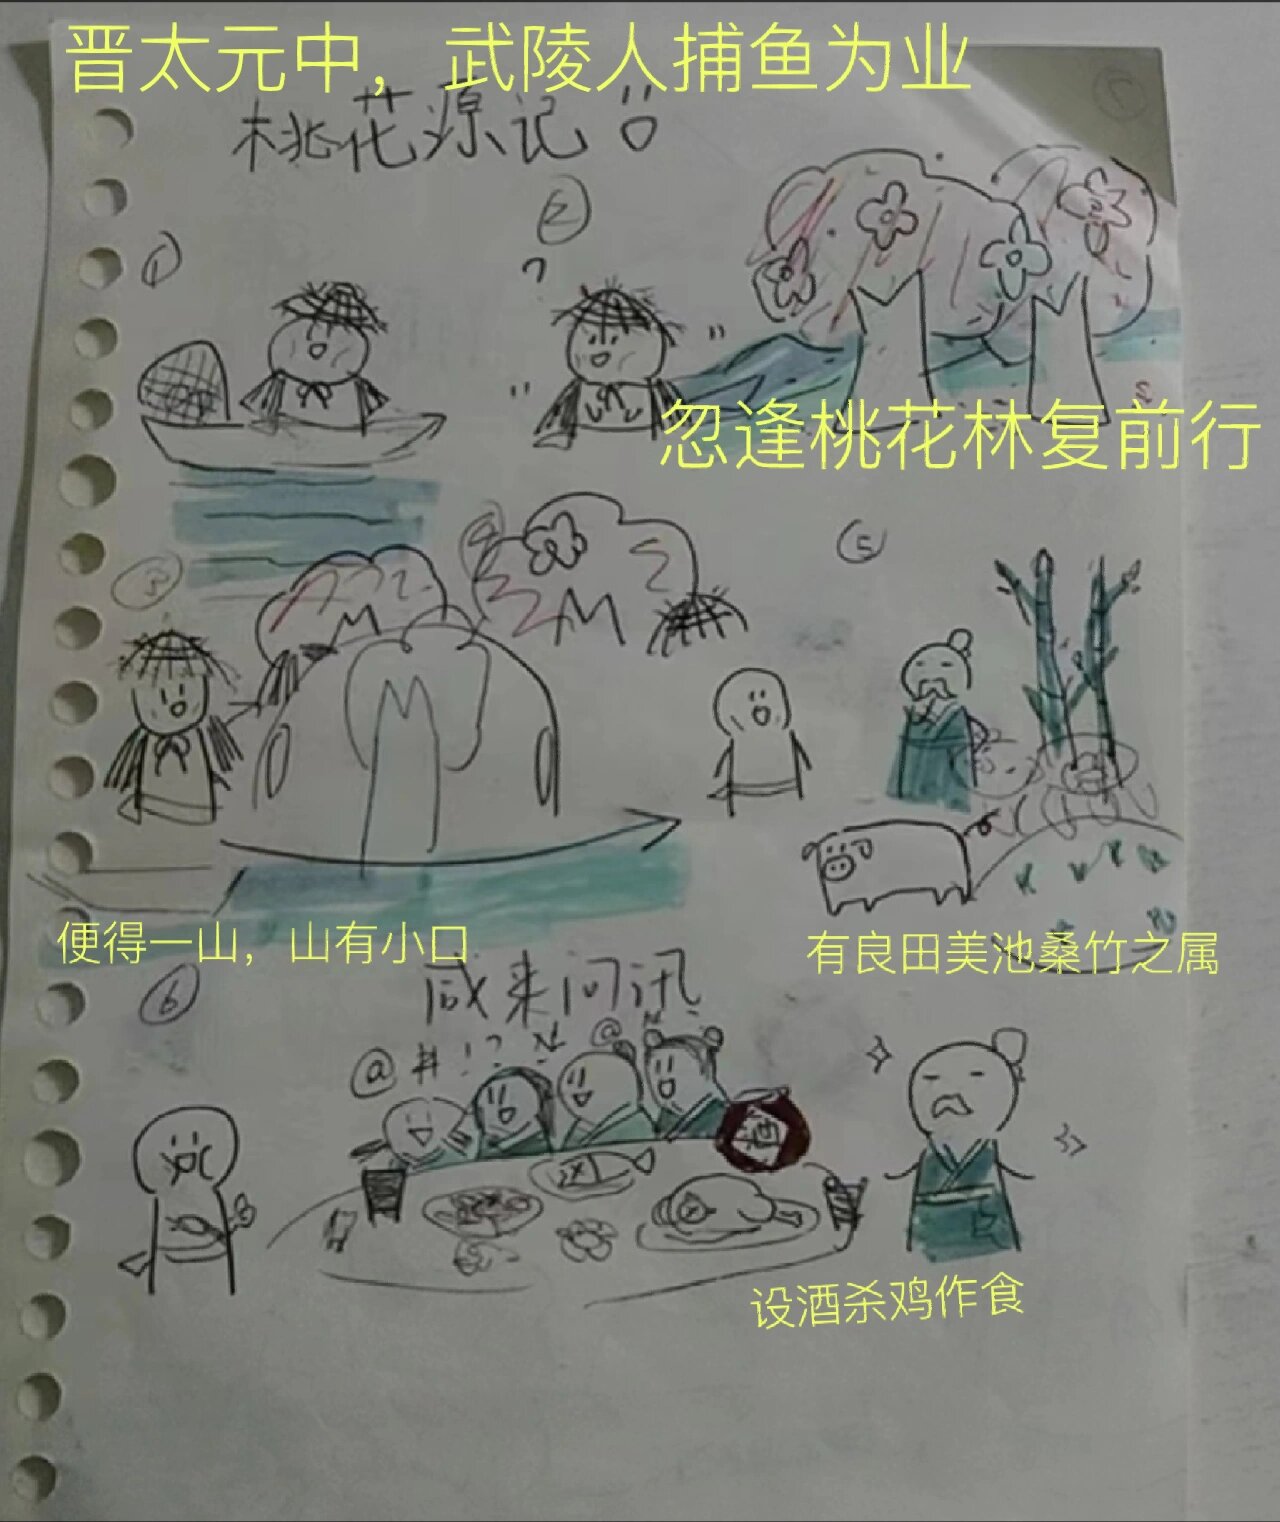 晋太元中，武陵人捕鱼为业
桃花源记
②
①
忽逢桃花林复前行
③
④
⑤
便得一山，山有小口
有良田美池桑竹之属
⑥
咸来问讯
@#!?
@
酒
设酒杀鸡作食